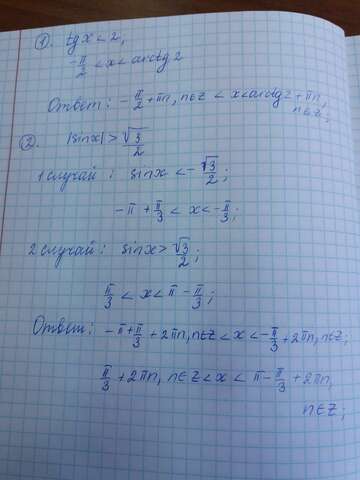 1. tg x < 2,
-π/2 < x < arctg 2
Ответ: -π/2 + πn, n∈Z < x < arctg 2 + πn,
n∈Z;
2. |sin x| > √3/2
1 случай: sin x < -√3/2;
-π + π/3 < x < -π/3;
2 случай: sin x > √3/2;
π/3 < x < π - π/3;
Ответ: -π + π/3 + 2πn, n∈Z < x < -π/3 + 2πn, n∈Z;
π/3 + 2πn, n∈Z < x < π - π/3 + 2πn,
n∈Z;